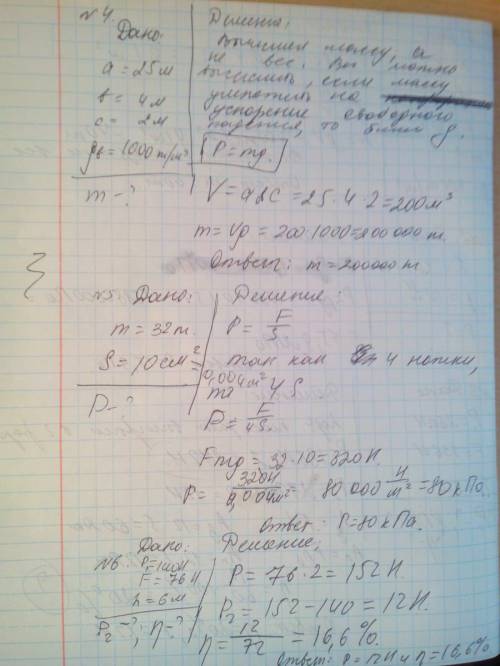 №4.
Дано:
a = 25 м
b = 4 м
c = 2 м
ρв = 1000 т/м³
m - ?
Решения:
Вычислил массу, а
не вес. Вес можно
вычислить, если массу
умножить на
ускорение свободного
падения, то бишь g.
P = mg.
V = abc = 25 · 4 · 2 = 200 м³
m = Vρ = 200 · 1000 = 200 000 т.
Ответ: m = 200000 т.
Дано:
m = 32 т.
S = 10 см²
0,004 м²
P - ?
Решение:
P = F/S
так как 4 ножки,
4S
P = F/4S
Fmg = 32 · 10 = 320 Н.
P = 320Н/0,004м² = 80 000 Н/м² = 80 кПа.
Ответ: P = 80 кПа.
№6.
Дано:
P = 140Н
F = 76 Н
h = 6 м
P₂ - ?; η - ?
Решение:
P = 76 · 2 = 152 Н.
P₂ = 152 - 140 = 12Н.
η = 12/72 = 16,6 %.
Ответ: P = 12Н и η = 16,6%